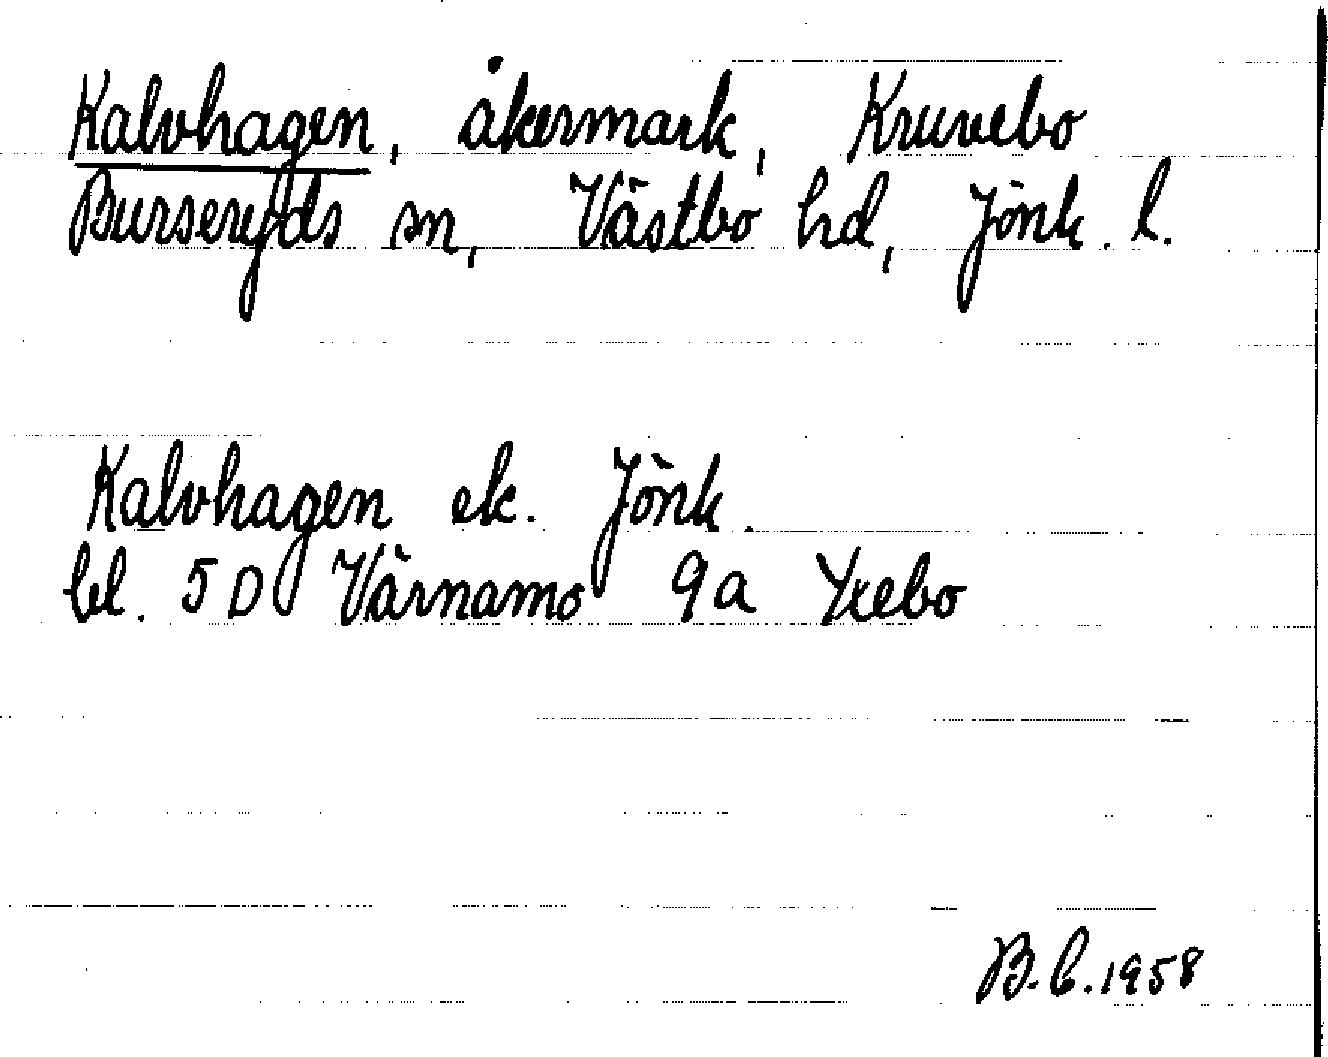 Kalvhagen, åkermark, Kruvebo
Burseryds sn, Västbo hd, Jönk. l.
Kalvhagen ek. Jönk.
bl. 5D Värnamo 9a Yxebo
B.b.1958